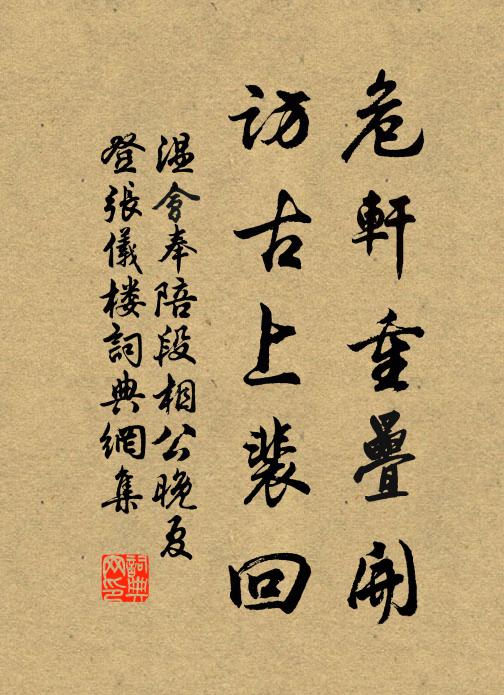 危軒重疊開
訪古上裴回
温會奉陪段相公晚夏
登張儀楼詞典網集
詞典网印